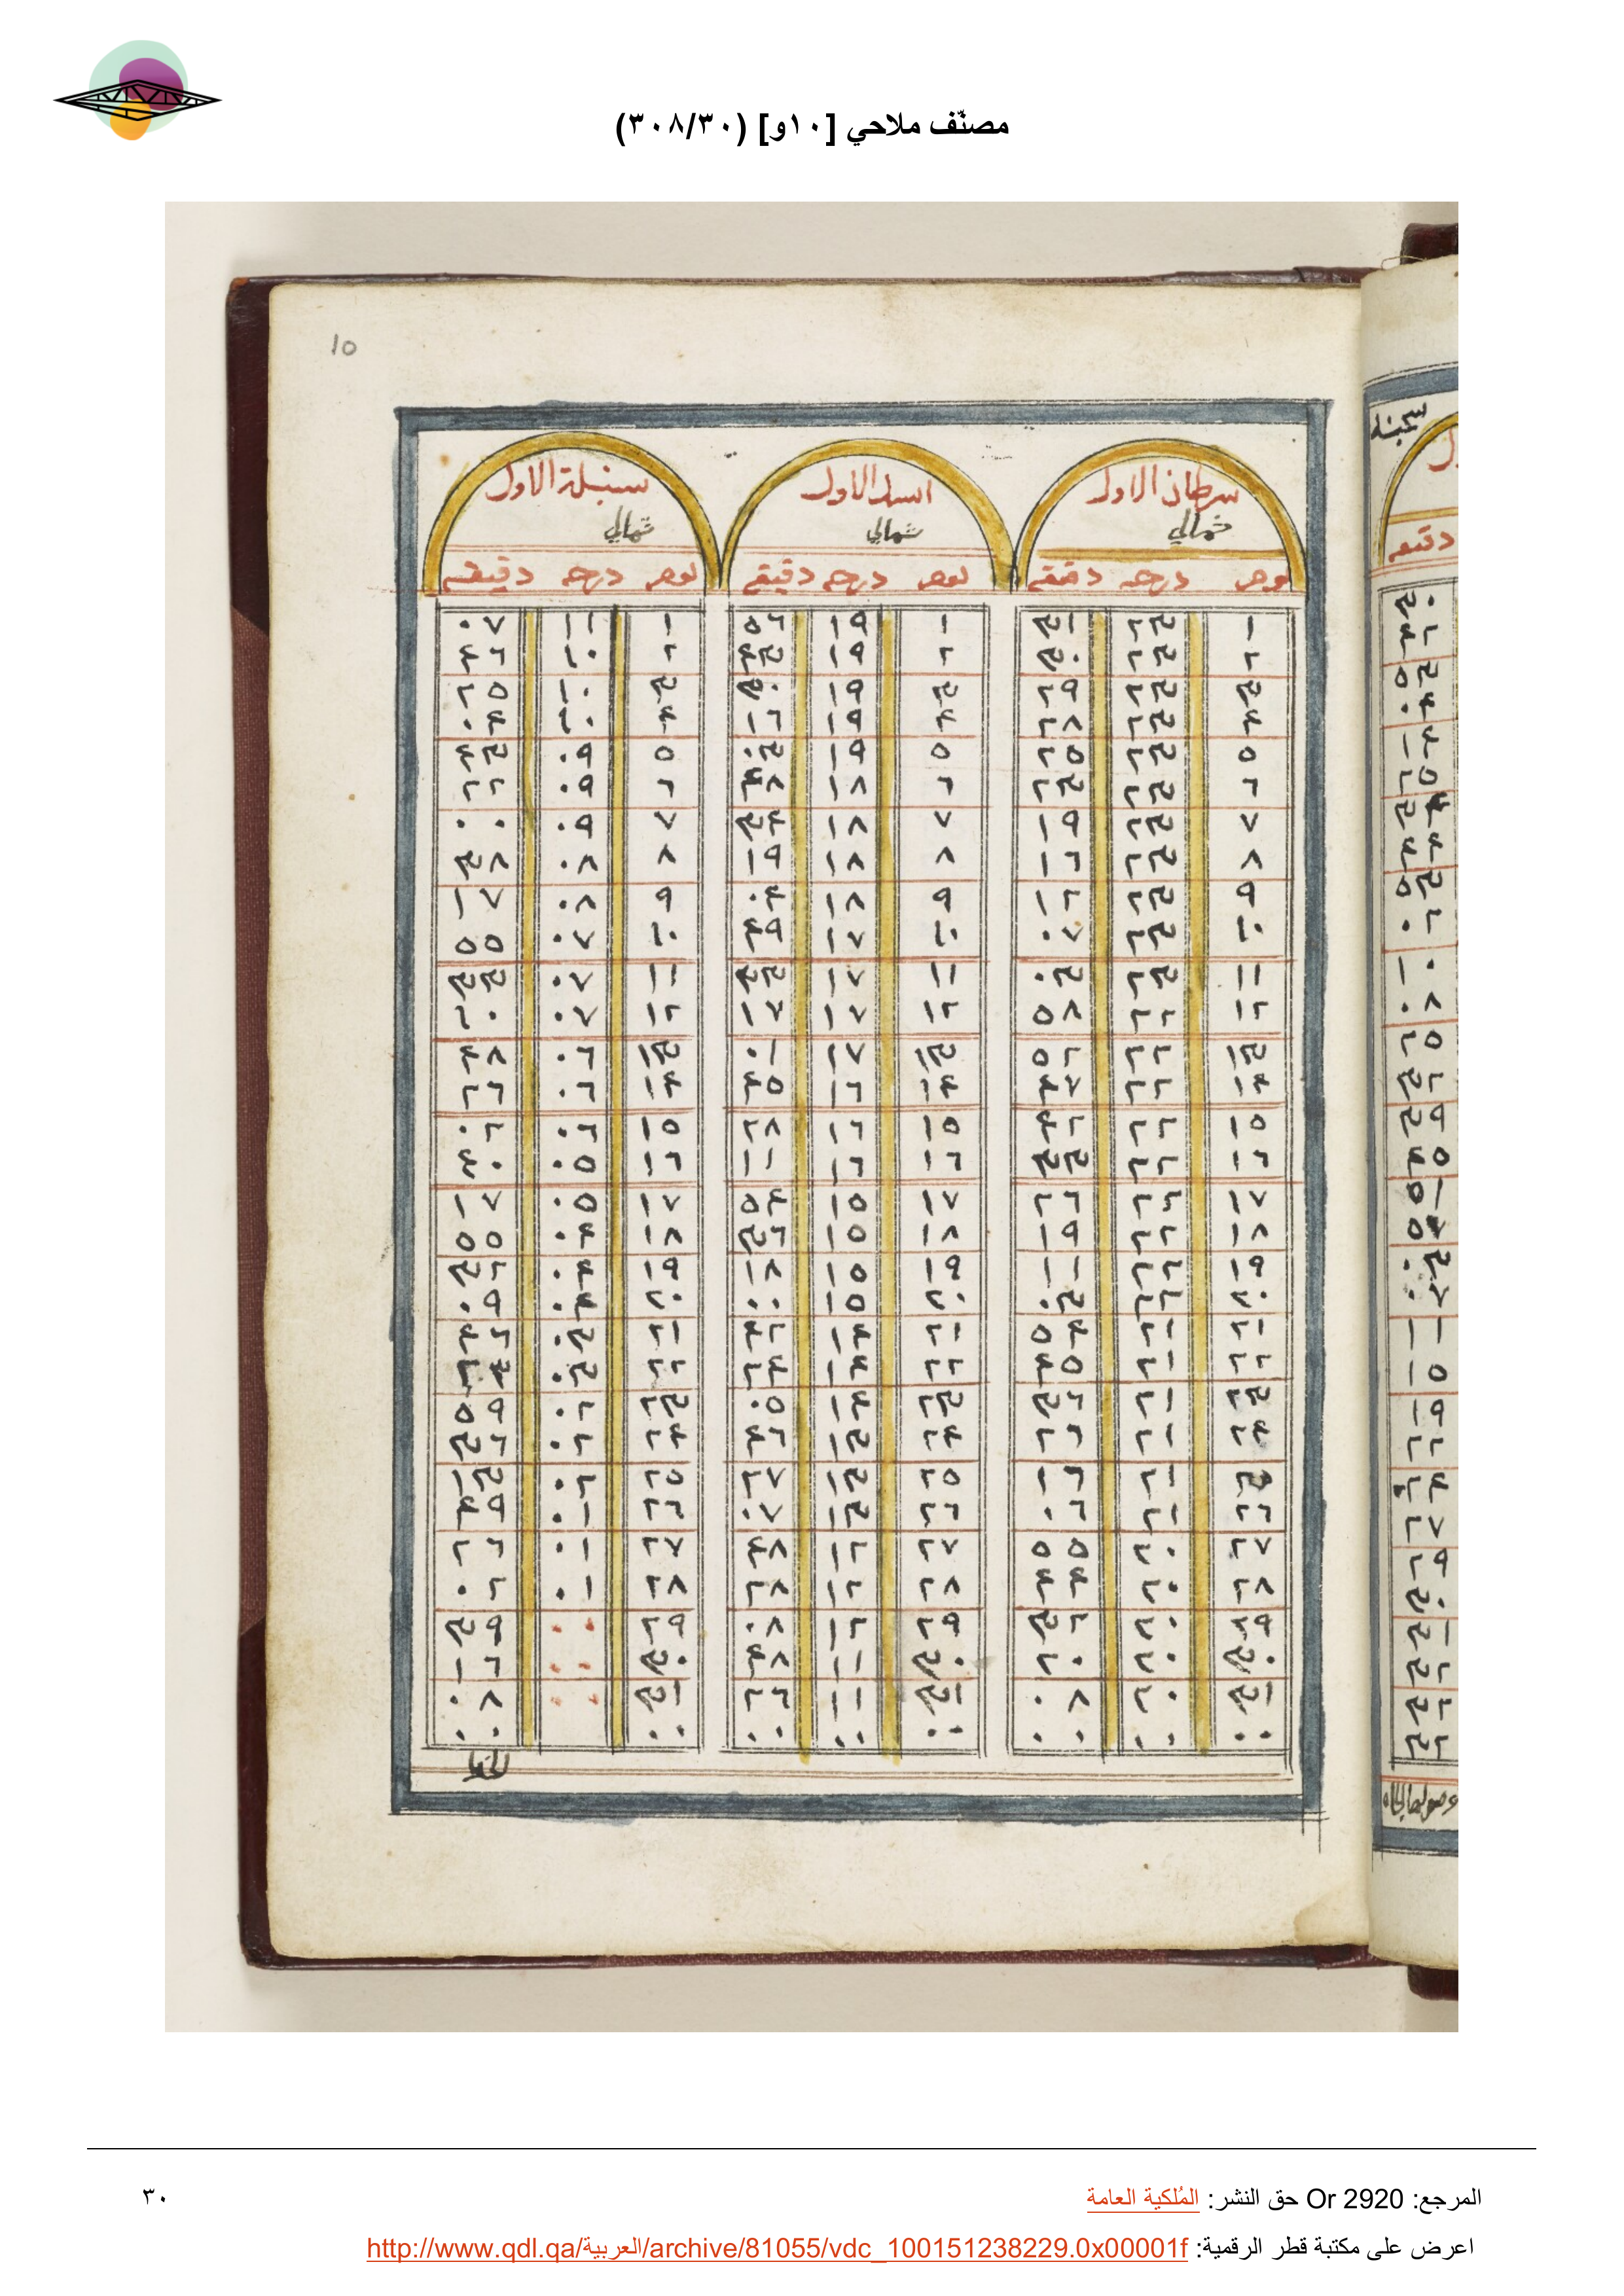 مصنّف ملاحي [١٠و] (٣٠٨/٣٠)
10
سرطان الاول اسد الاول سنبلة الاول
شمالي شمالي شمالي
يوم درجه دقيقه يوم درجه دقيقه يوم درجه دقيقه
١ ٢٣ ٣١ ١ ١٩ ٥٦ ١ ١١ ٠٧
٢ ٢٣ ٣٠ ٢ ١٩ ٤٣ ٢ ١٠ ٤٦
٣ ٢٣ ٢٩ ٣ ١٩ ٣٠ ٣ ١٠ ٢٥
٤ ٢٣ ٢٨ ٤ ١٩ ١٦ ٤ ١٠ ٠٤
٥ ٢٣ ٢٥ ٥ ١٩ ٠٣ ٥ ٠٩ ٤٣
٦ ٢٣ ٢٣ ٦ ١٨ ٤٨ ٦ ٠٩ ٢٢
٧ ٢٣ ١٩ ٧ ١٨ ٣٤ ٧ ٠٩ ٠٠
٨ ٢٣ ١٦ ٨ ١٨ ١٩ ٨ ٠٨ ٣٨
٩ ٢٣ ١٢ ٩ ١٨ ٠٤ ٩ ٠٨ ١٧
١٠ ٢٣ ٠٧ ١٠ ١٧ ٤٩ ١٠ ٠٧ ٥٥
١١ ٢٣ ٠٣ ١١ ١٧ ٣٣ ١١ ٠٧ ٣٣
١٢ ٢٢ ٥٨ ١٢ ١٧ ١٧ ١٢ ٠٧ ١٠
١٣ ٢٢ ٥٢ ١٣ ١٧ ٠١ ١٣ ٠٦ ٤٨
١٤ ٢٢ ٤٧ ١٤ ١٦ ٤٥ ١٤ ٠٦ ٢٦
١٥ ٢٢ ٤٢ ١٥ ١٦ ٢٨ ١٥ ٠٦ ٠٢
١٦ ٢٢ ٣٣ ١٦ ١٦ ١١ ١٦ ٠٥ ٤٠
١٧ ٢٢ ٢٦ ١٧ ١٥ ٥٤ ١٧ ٠٥ ١٧
١٨ ٢٢ ١٩ ١٨ ١٥ ٣٦ ١٨ ٠٤ ٥٥
١٩ ٢٢ ١١ ١٩ ١٥ ١٨ ١٩ ٠٤ ٣٢
٢٠ ٢٢ ٠٣ ٢٠ ١٥ ٠٠ ٢٠ ٠٤ ٠٩
٢١ ٢١ ٥٤ ٢١ ١٤ ٤٢ ٢١ ٠٣ ٤٦
٢٢ ٢١ ٤٥ ٢٢ ١٤ ٢٤ ٢٢ ٠٣ ٢٤
٢٣ ٢١ ٣٦ ٢٣ ١٤ ٠٥ ٢٣ ٠٢ ٥٩
٢٤ ٢١ ٢٦ ٢٤ ١٣ ٤٦ ٢٤ ٠٢ ٣٦
٢٥ ٢١ ١٦ ٢٥ ١٣ ٢٧ ٢٥ ٠٢ ١٣
٢٦ ٢١ ٠٦ ٢٦ ١٣ ٠٧ ٢٦ ٠١ ٤٩
٢٧ ٢٠ ٥٥ ٢٧ ١٢ ٤٨ ٢٧ ٠١ ٢٦
٢٨ ٢٠ ٤٤ ٢٨ ١٢ ٢٨ ٢٨ ٠١ ٠٢
٢٩ ٢٠ ٣٢ ٢٩ ١٢ ٠٨ ٢٩ ٠٠ ٣٩
٣٠ ٢٠ ٢٠ ٣٠ ١١ ٤٨ ٣٠ ٠٠ ١٦
٣١ ٢٠ ٠٨ ٣١ ١١ ٢٦ ٣١ ٠٠ ٠٨
٠٠ ٠٠ ٠٠ ٠٠ ٠٠ ٠٠ ٠٠ ٠٠
المرجع: Or 2920 حق النشر: المُلكية العامة
٣٠
اعرض على مكتبة قطر الرقمية: http://www.qdl.qa/العربية/archive/81055/vdc_100151238229.0x00001f